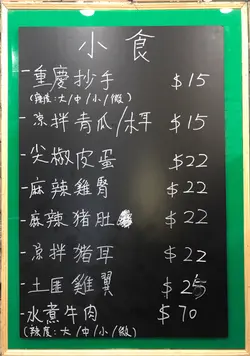 小食
-重慶抄手 $15
(辣度:大/中/小/微)
-凉拌青瓜/木耳 $15
-尖椒皮蛋 $22
-麻辣雞腎 $22
-麻辣猪肚 $22
-凉拌猪耳 $22
-土匪雞翼 $25
-水煮牛肉 $70
(辣度:大/中/小/微)